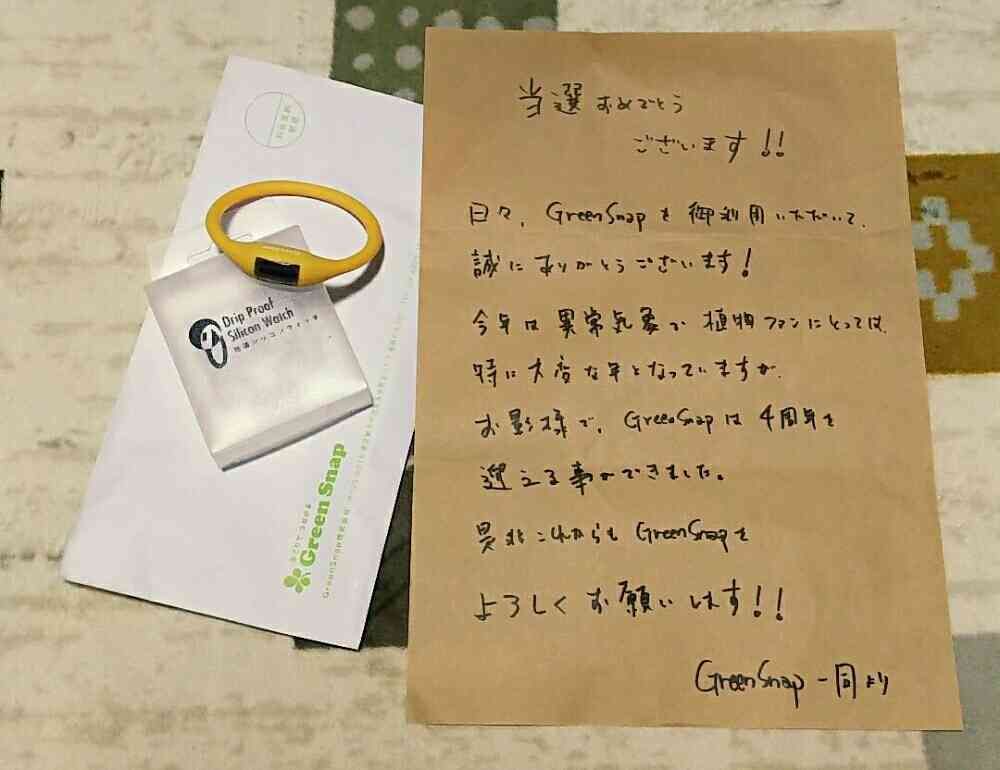 当選おめでとう
ございます!!
日々、GreenSnapを御利用いただいて、
誠にありがとうございます!
今年は異常気象で植物ファンにとっては、
特に大変な年となっていますが、
お影様で、GreenSnapは4周年を
迎える事ができました。
是非これからもGreenSnapを
よろしくお願いします!!
GreenSnap一同より
Drip Proof
Silicon Watch
防滴シリコンウォッチ
みどりでつながる
Green Snap
GreenSnap株式会社